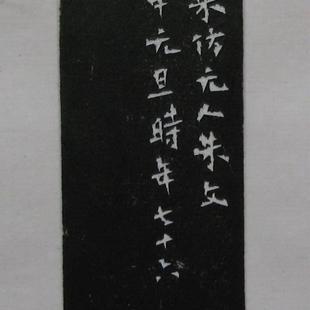 仿元人朱文
元旦時年七十六